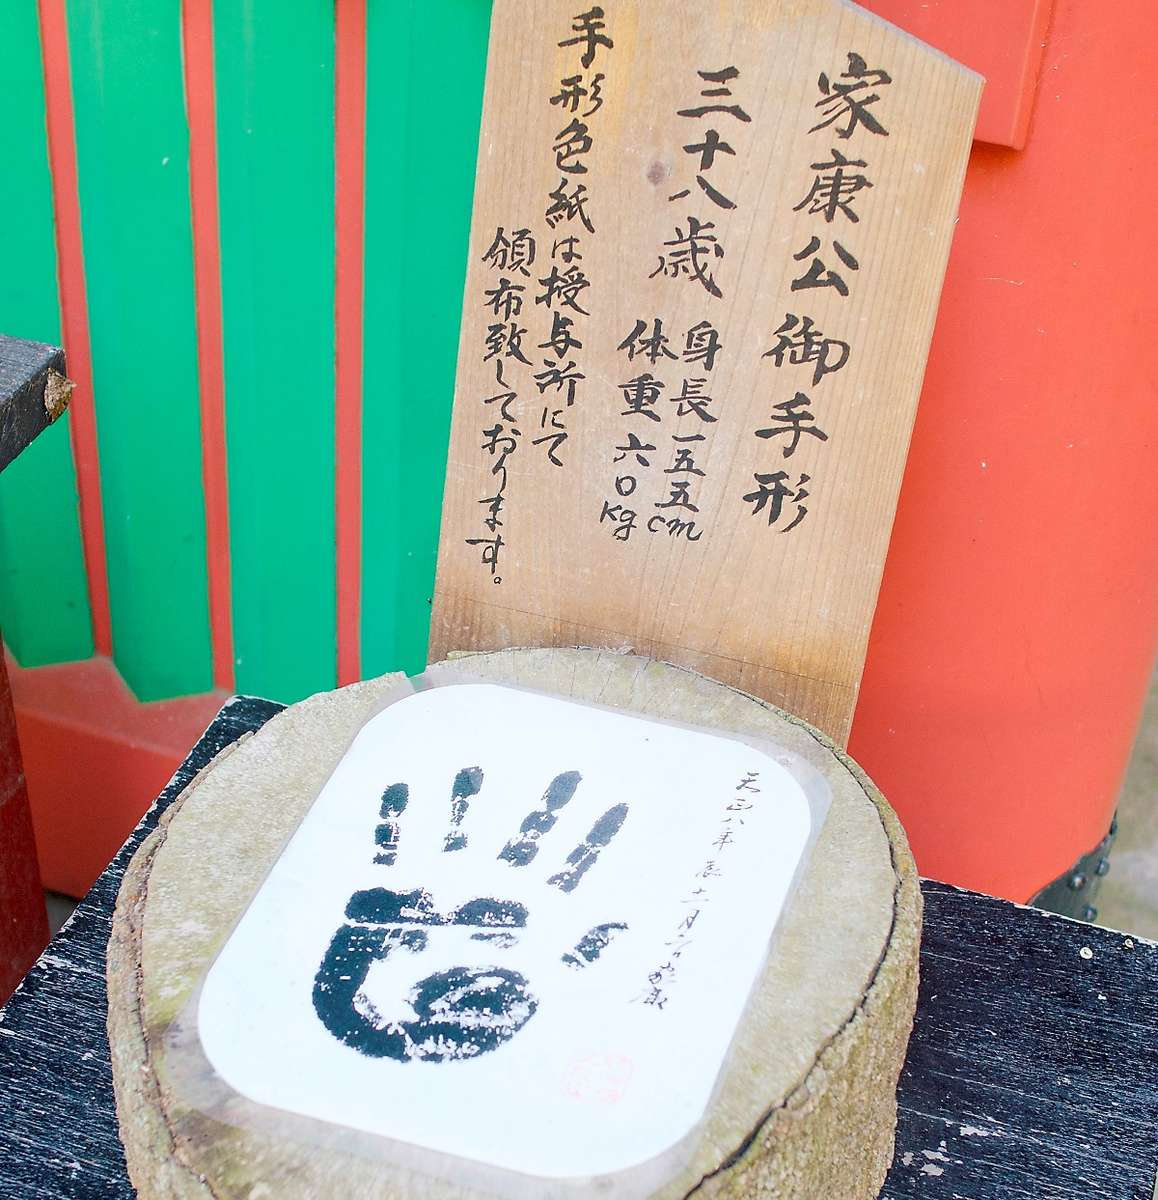 家康公御手形
三十八歳
身長一五五cm
体重六〇kg
手形色紙は授与所にて
頒布致しております。
天正八年 辰 十一月